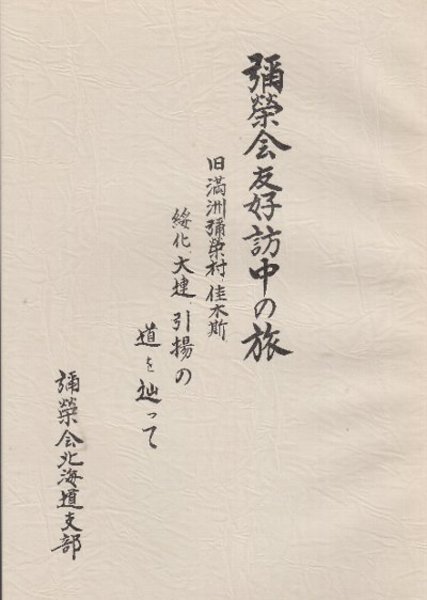 彌榮会友好訪中の旅
旧満洲彌榮村、佳木斯
綏化、大連、引揚の
道を辿って
彌榮会北海道支部